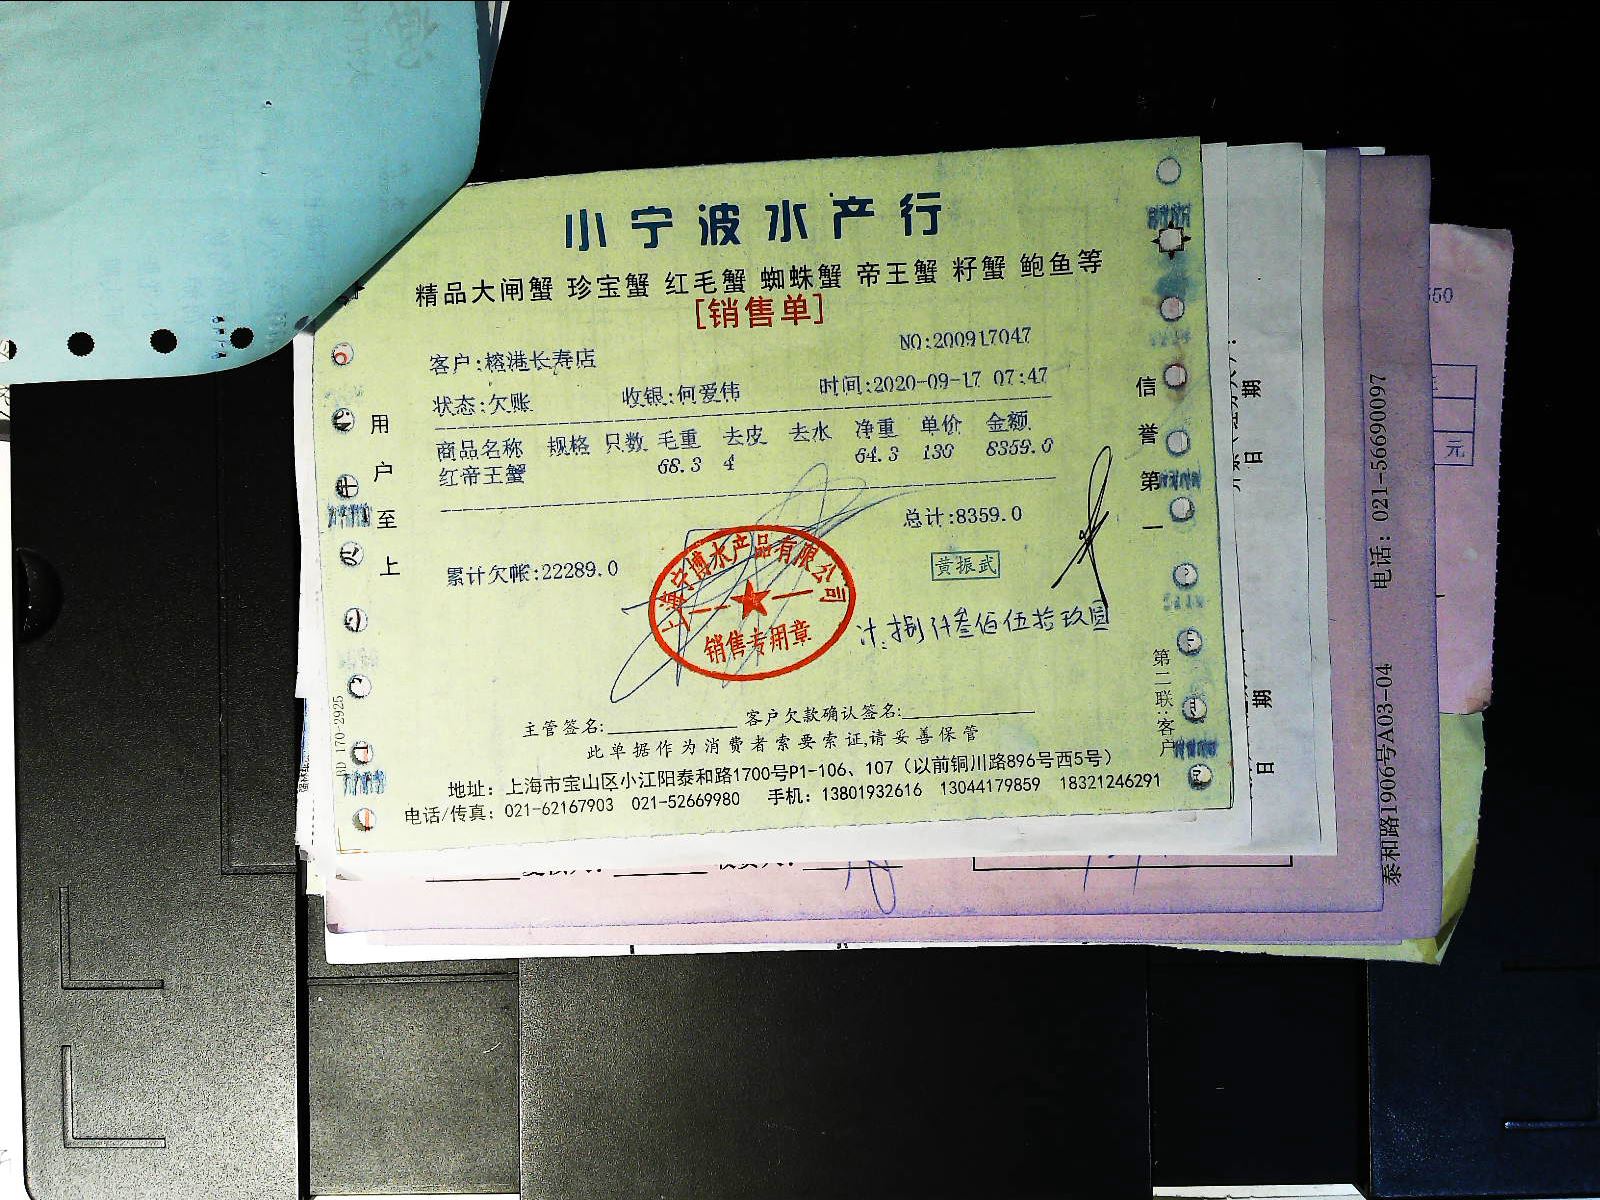 小宁波水产行
精品大闸蟹 珍宝蟹 红毛蟹 蜘蛛蟹 帝王蟹 籽蟹 鲍鱼等
[销售单]
NO:200917047
客户:榕港长寿店
状态:欠账 收银:何爱伟 时间:2020-09-17 07:47
商品名称 规格 只数 毛重 去皮 去水 净重 单价 金额
红帝王蟹 68.3 4 64.3 130 8359.0
总计:8359.0
累计欠帐:22289.0
黄振武
上海宁博水产品有限公司
销售专用章
计:捌仟叁佰伍拾玖圆
主管签名: 客户欠款确认签名:
此单据作为消费者索要索证,请妥善保管
地址：上海市宝山区小江阳泰和路1700号P1-106、107（以前铜川路896号西5号）
电话/传真：021-62167903 021-52669980 手机：13801932616 13044179859 18321246291
用户至上
信誉第一
第二联:客户
HD 170-2925
期
日
期
日
电话：021-56690097
泰和路1906号A03-04
550
元